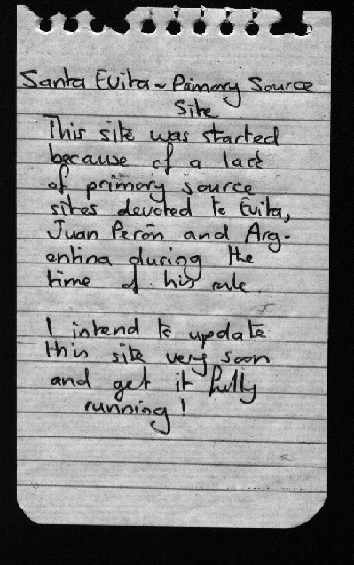 Santa Evita ~ Primary Source
Site
This site was started
because of a lack
of primary source
sites devoted to Evita,
Juan Perón and Arg-
entina during the
time of his rule.
I intend to update
this site very soon
and get it fully
running!